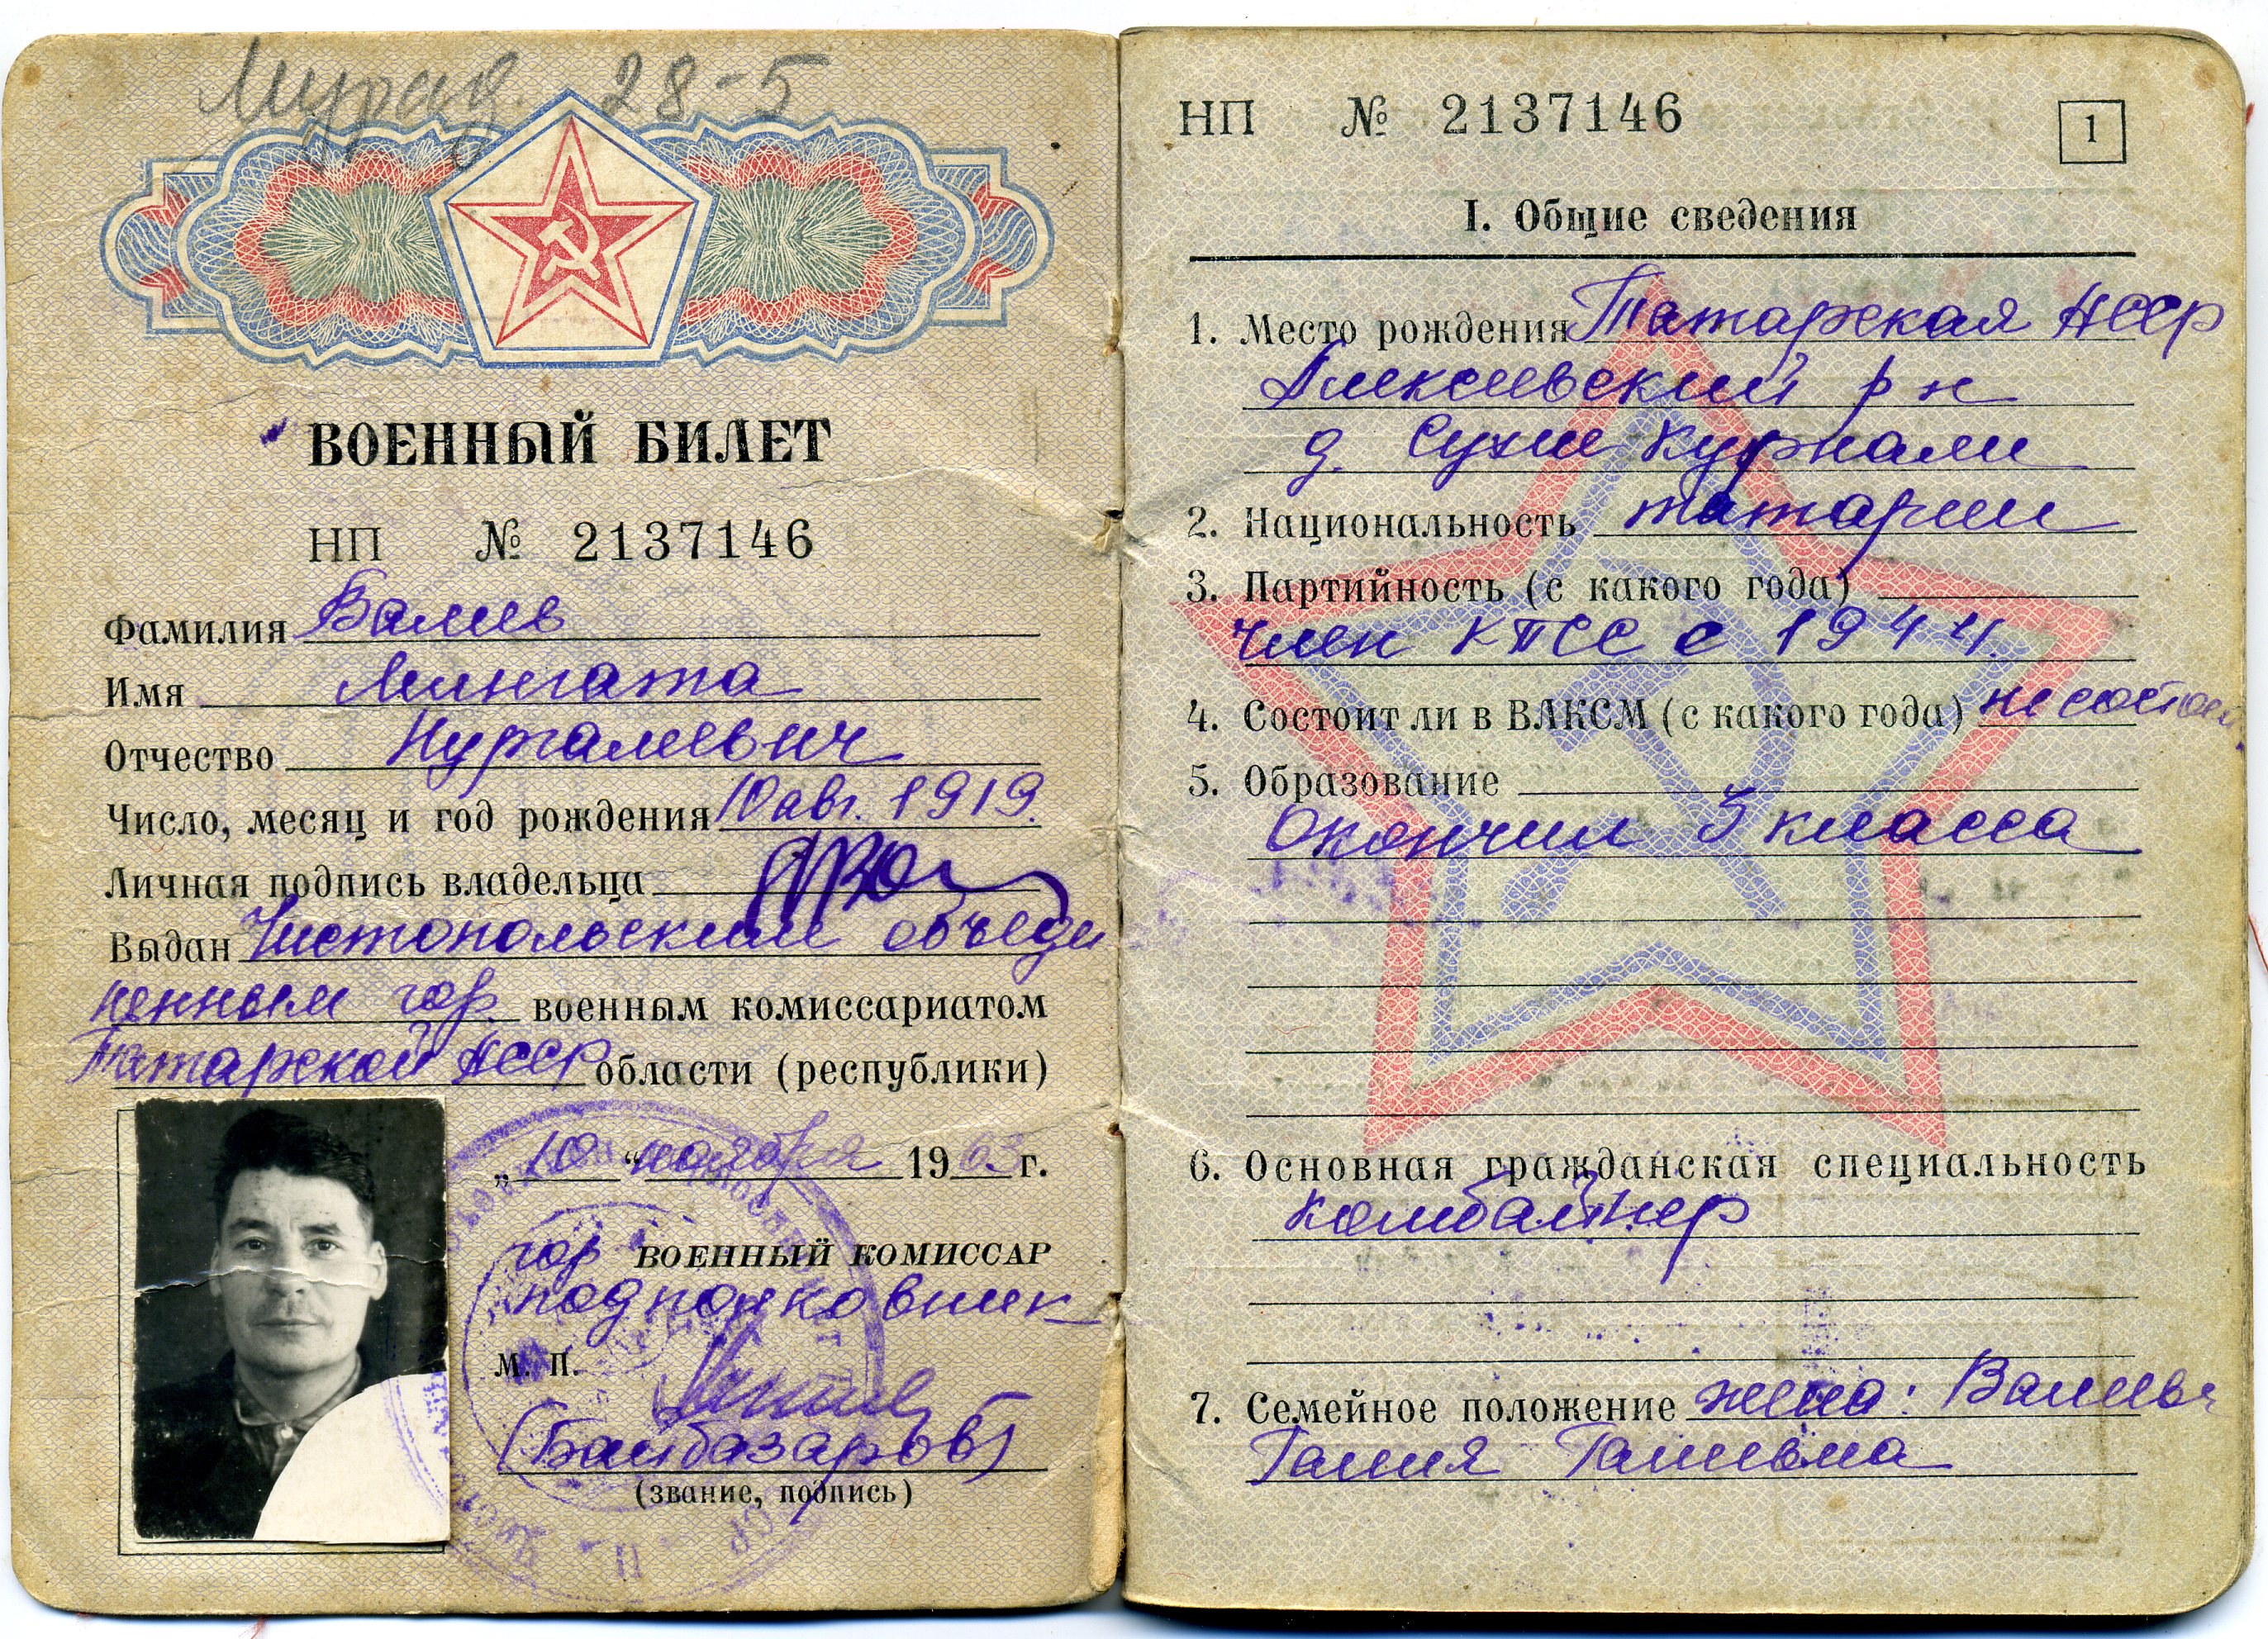 Мурад. 28-5
ВОЕННЫЙ БИЛЕТ
НП № 2137146
Фамилия Валиев
Имя Мингата
Отчество Нургалиевич
Число, месяц и год рождения 10 авг. 1919.
Личная подпись владельца
Выдан Чистопольским объеди
ненным гор. военным комиссариатом
Татарской АССР области (республики)
„10“ ноября 1963 г.
гор ВОЕННЫЙ КОМИССАР
подполковник
М. П.
(Байбазаров)
(звание, подпись)
НП № 2137146
1
I. Общие сведения
1. Место рождения Татарская АССР
Алексеевский р н
д. Сухие Курнали
2. Национальность татарин
3. Партийность (с какого года)
член КПСС с 1944.
4. Состоит ли в ВЛКСМ (с какого года) не состоит
5. Образование
Окончил 3 класса
6. Основная гражданская специальность
комбайнер
7. Семейное положение жена: Валиева
Галия Галиевна